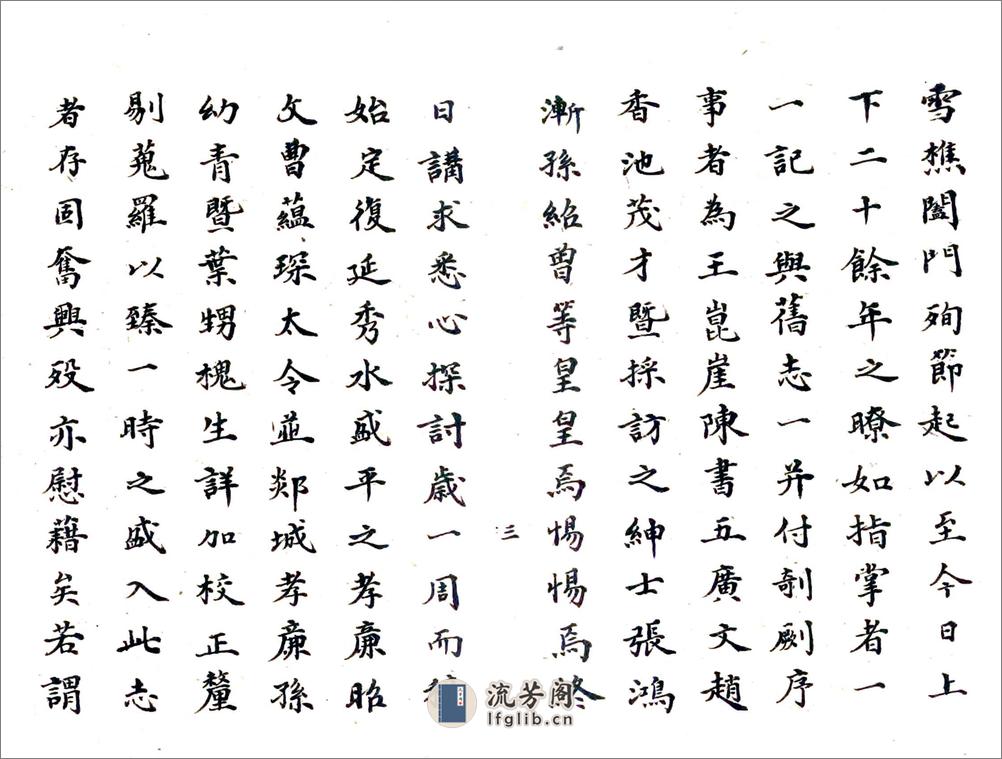 雪樵闔門殉節起以至今日上
下二十餘年之瞭如指掌者一
一記之與舊志一并付剞劂序
事者為王崑崖陳書五廣文趙
香池茂才暨採訪之紳士張鴻
漸孫紹曾等皇皇焉惕惕焉終
三
日講求悉心探討歲一周而
始定復延秀水盛平之孝廉昭
文曹蘊琛太令並郯城孝廉孫
幼青暨葉甥槐生詳加校正釐
剔蒐羅以臻一時之盛入此志
者存固奮興歿亦慰藉矣若謂
流芳阁
lfglib.cn